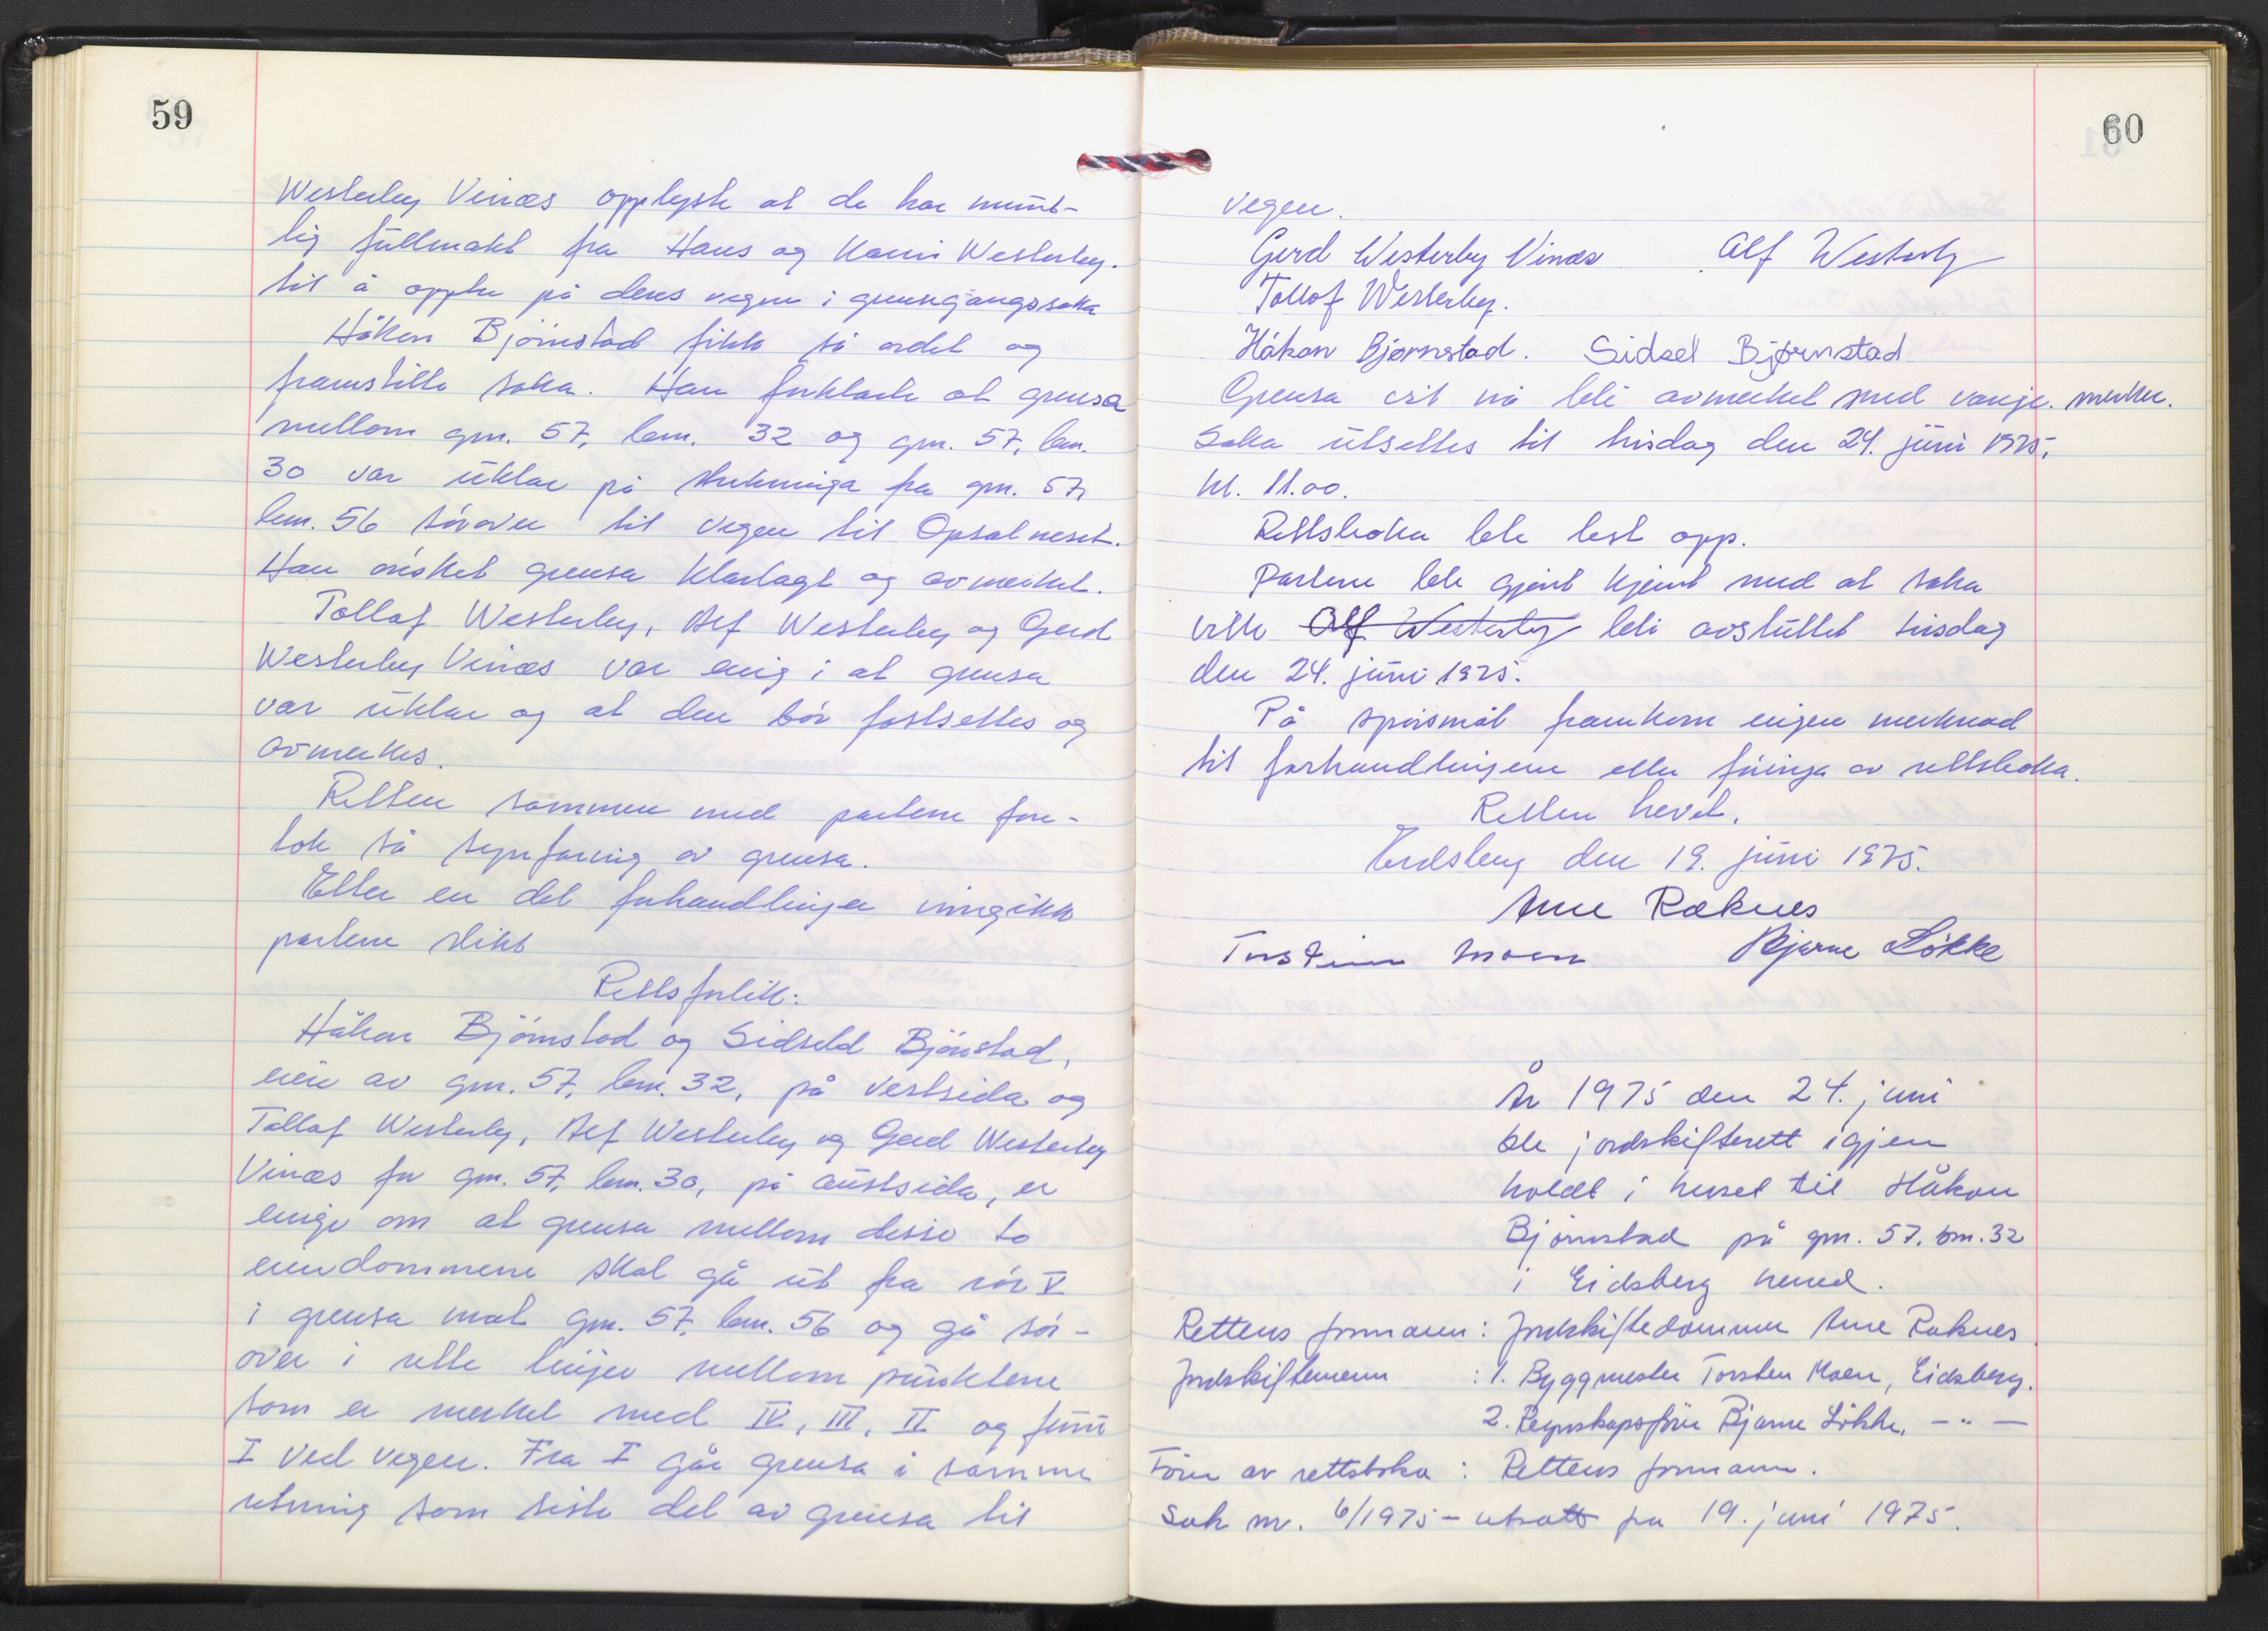 59
Westerby Vinæs opplyste at de har munt-
lig fullmakt fra Hans og Karin Westerby.
til å opptre på deres vegne i grensegangssaka
Håkon Björnstad fikk så ordet og
framstille saka. Han forklarte at grensa
mellom gnr. 57, bnr. 32 og gnr. 57, bnr.
30 var uklar på strekninga fra gnr. 57,
bnr. 56 sörover til vegen til Opsalneset.
Han önsket grensa klarlagt og avmerket.
Tollof Westerby, Alf Westerby og Gerd
Westerby Vinæs var enig i at grensa
var uklar og at den bör fastsettes og
avmerkes.
Retten sammen med partene fore-
tok så synfaring av grensa.
Etter en del forhandlinger inngikk
partene slikt
Rettsforlik:
Håkon Björnstad og Sidseld Björnstad,
eier av gnr. 57, bnr. 32, på vestsida og
Tollof Westerby, Alf Westerby og Gerd Westerby
Vinæs for gnr. 57, bnr. 30, på austsida, er
enige om at grensa mellom disse to
eiendommene skal gå ut fra rör V
i grensa mot gnr. 57, bnr. 56 og gå sör-
over i rette linjer mellom punktene
som er merket med IV, III, II og fram
I ved vegen. Fra I går grensa i samme
retning som siste del av grensa til
60
vegen.
Gerd Westerby Vinæs Alf Westerby
Tollof Westerby.
Håkon Bjørnstad. Sidsel Bjørnstad
Grensa vil nå bli avmerket med varige. merker.
Saka utsettes til tirsdag den 24. juni 1975,
kl. 11.00.
Rettsboka ble lest opp.
Partene ble gjort kjent med at saka
ville Alf Westerby bli avsluttet tirsdag
den 24. juni 1975.
På spörsmål framkom ingen merknad
til forhandlingene eller föringa av rettsboka.
Retten hevet.
Eidsberg den 19. juni 1975.
Arne Raknes
Torstein Moen Bjarne Løkke
År 1975 den 24. juni
ble jordskifterett igjen
holdt i huset til Håkon
Björnstad på gnr. 57. bnr. 32
i Eidsberg herred.
Rettens formann: Jordskiftedommer Arne Raknes.
Jordskiftemenn : 1. Byggmester Torsten Moen, Eidsberg.
2. Regnskapsförer Bjarne Lökke, — " —
Förer av rettsboka : Rettens formann.
Sak nr. 6/1975 - utsatt fra 19. juni 1975.